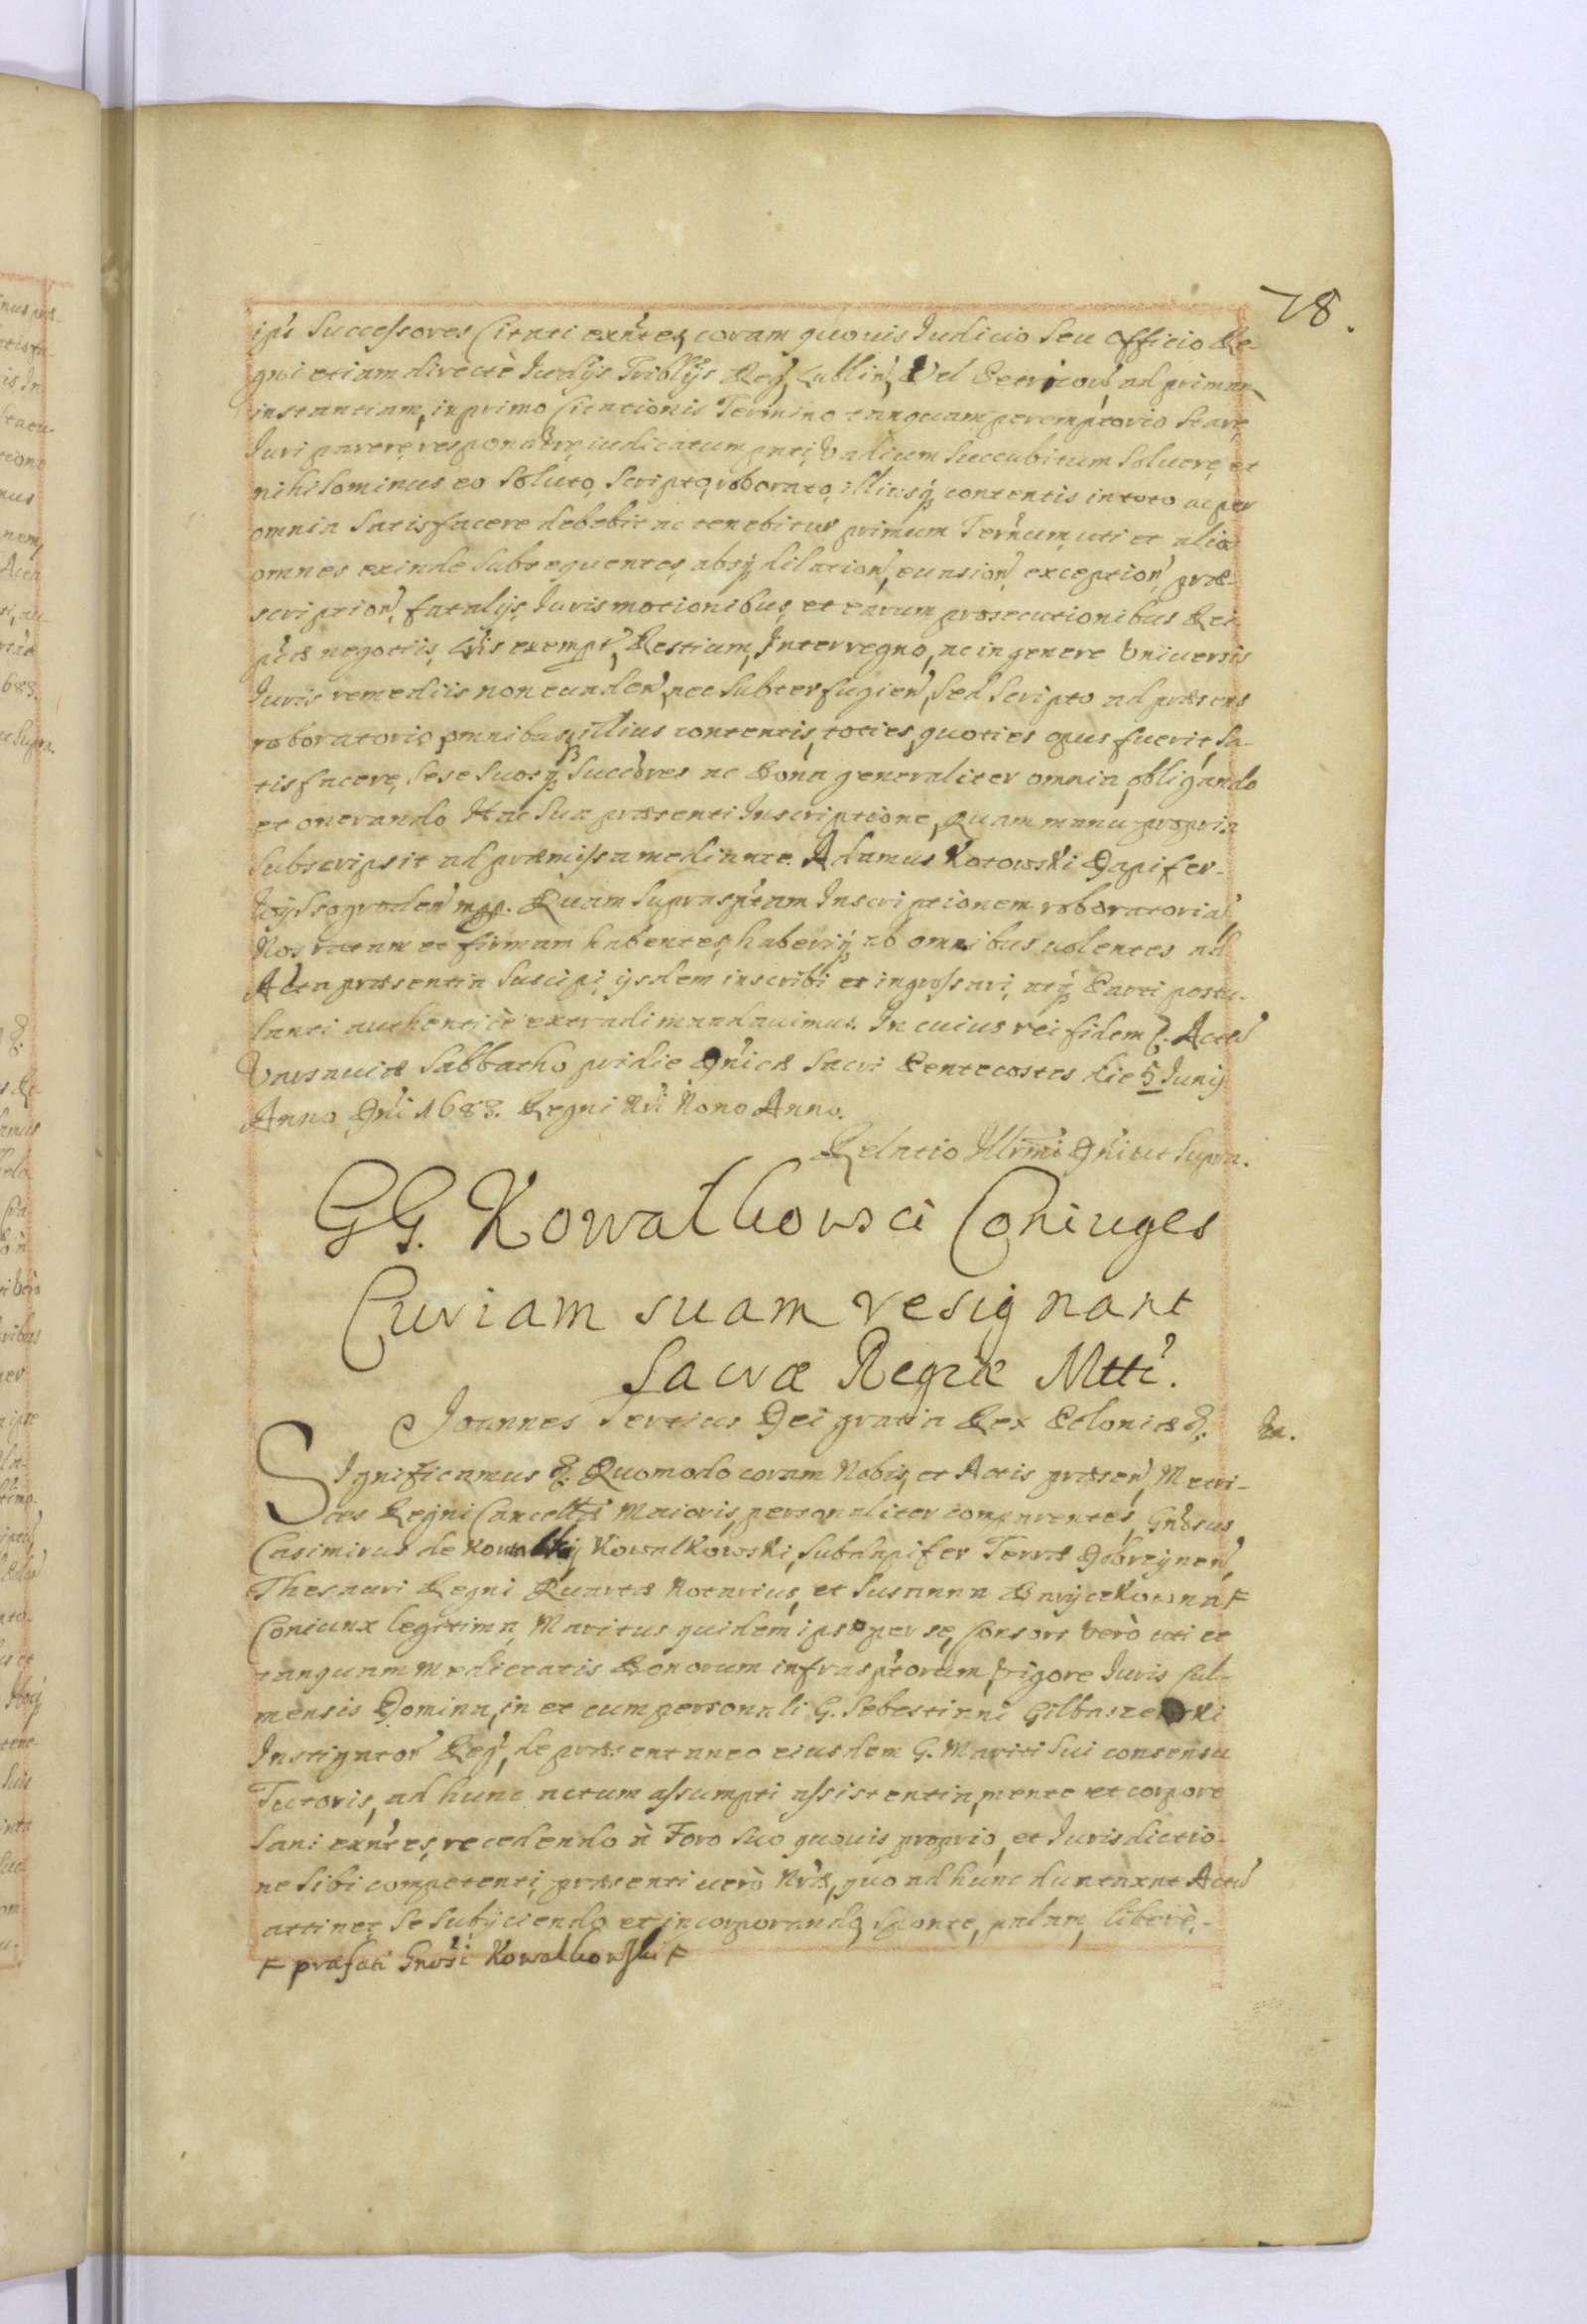 78.
ips Successores Citati exn̄tes, coram quouis Iudicio seu Officio Re-
gni etiam directè Iudijs Triblijs Regn̄, Lublin̄, Vel Petricou̅, ad primam
instantiam, in primo Citationis Termino tanquam peremptorio Stare,
Iuri parere, respondere, iudicatum pati, Vadium succubitum soluere, et
nihilominus eo soluto, Scripto, roborato, illiusq; contentis in toto ac per
omnia Satisfacere debebit ac tenebitur primum Ternum, uti et alios
omnes exinde Subsequentes, absq; dilation̄, euasion̄, exception̄, præ-
scription̄, fatalijs, Iuris motionibus, et earum prosecutionibus Rei-
p̄cæ negotiis, exempt̄, Bestium, Interregno, ac in genere Vniuersis
Iuris remediis non euanden̄, nec Subterfugien̄, Sed Scripto ad præsens
roboratorio, omnibusq; illius contentis, toties, quoties opus fuerit, Sa-
tisfacere, Sese Suosq; Succ̄ores ac Bona generaliter omnia, obligando
et onerando Hac Sua præsenti Inscriptione, Quam manu propria
Subscripsit ad præmissa mediante. Adamus Kotowski Dapifer-
Wyszogroden̄ mpp. Quam Suprasp̄tam Inscriptionem roboratoria̅
Nos ratam et firmam habentes, haberiq; ab omnibus uolentes ad
Acta præsentia Suscipi, ijsdem inscribi et ingrossari, atq; Parti postu-
lanti authenticè extradi mandauimus. In cuius rei fidem &. Actu̅
Varsauiæ Sabbatho pridie Dn̄icæ Sacri Pentecostes die 5 Iunij
Anno Dn̄i 1683. Regni Nri Nono Anno.
Relatio Illrmi Dn̄i ut Supra.
GG. Kowalkowsci Coniuges
Curiam suam resignant
Sacræ Regiæ Mtti.
Joannes Tertius Dei gratia Rex Poloniæ &.
In.
Significamus &. Quomodo coram Nobis, et Actis præsen̄, Metri-
ces Regni Cancellæ Maioris, personaliter comparentes, Gn̄osus
Casimirus de Kowalki Kowalkowski, Subdapifer Terræ Dobrzynen̄,
Thesauri Regni Quartæ Notarius, et Susanna Baryczkowna F
Coniunx legitima, Maritus quidem ipse per se, Consors verò uti et
tanquam medietatis Bonorum infrasp̄torum, vigore Iuris Cul-
mensis Domina, in et cum personali G. Sebestiani Gilbaszewski
Instigator̄ Regn̄, de præsentaneo eiusdem G. Mariti sui consensu
Tutoris, ad hunc actum assumpti assistentia, mente et corpore
Sani exn̄tes, recedendo à Foro Suo quouis proprio, et Iurisdictio-
ne Sibi competenti, præsenti uerò Nræ, quo ad hunc duntaxat Actu̅
attinet, Se Subijciendo et incorporando, Sponte, palam, liberè,-
F præfati Gnosi Kowalkowski F